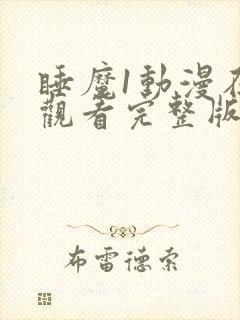 睡魔1動漫在
觀看完整版
布雷德索